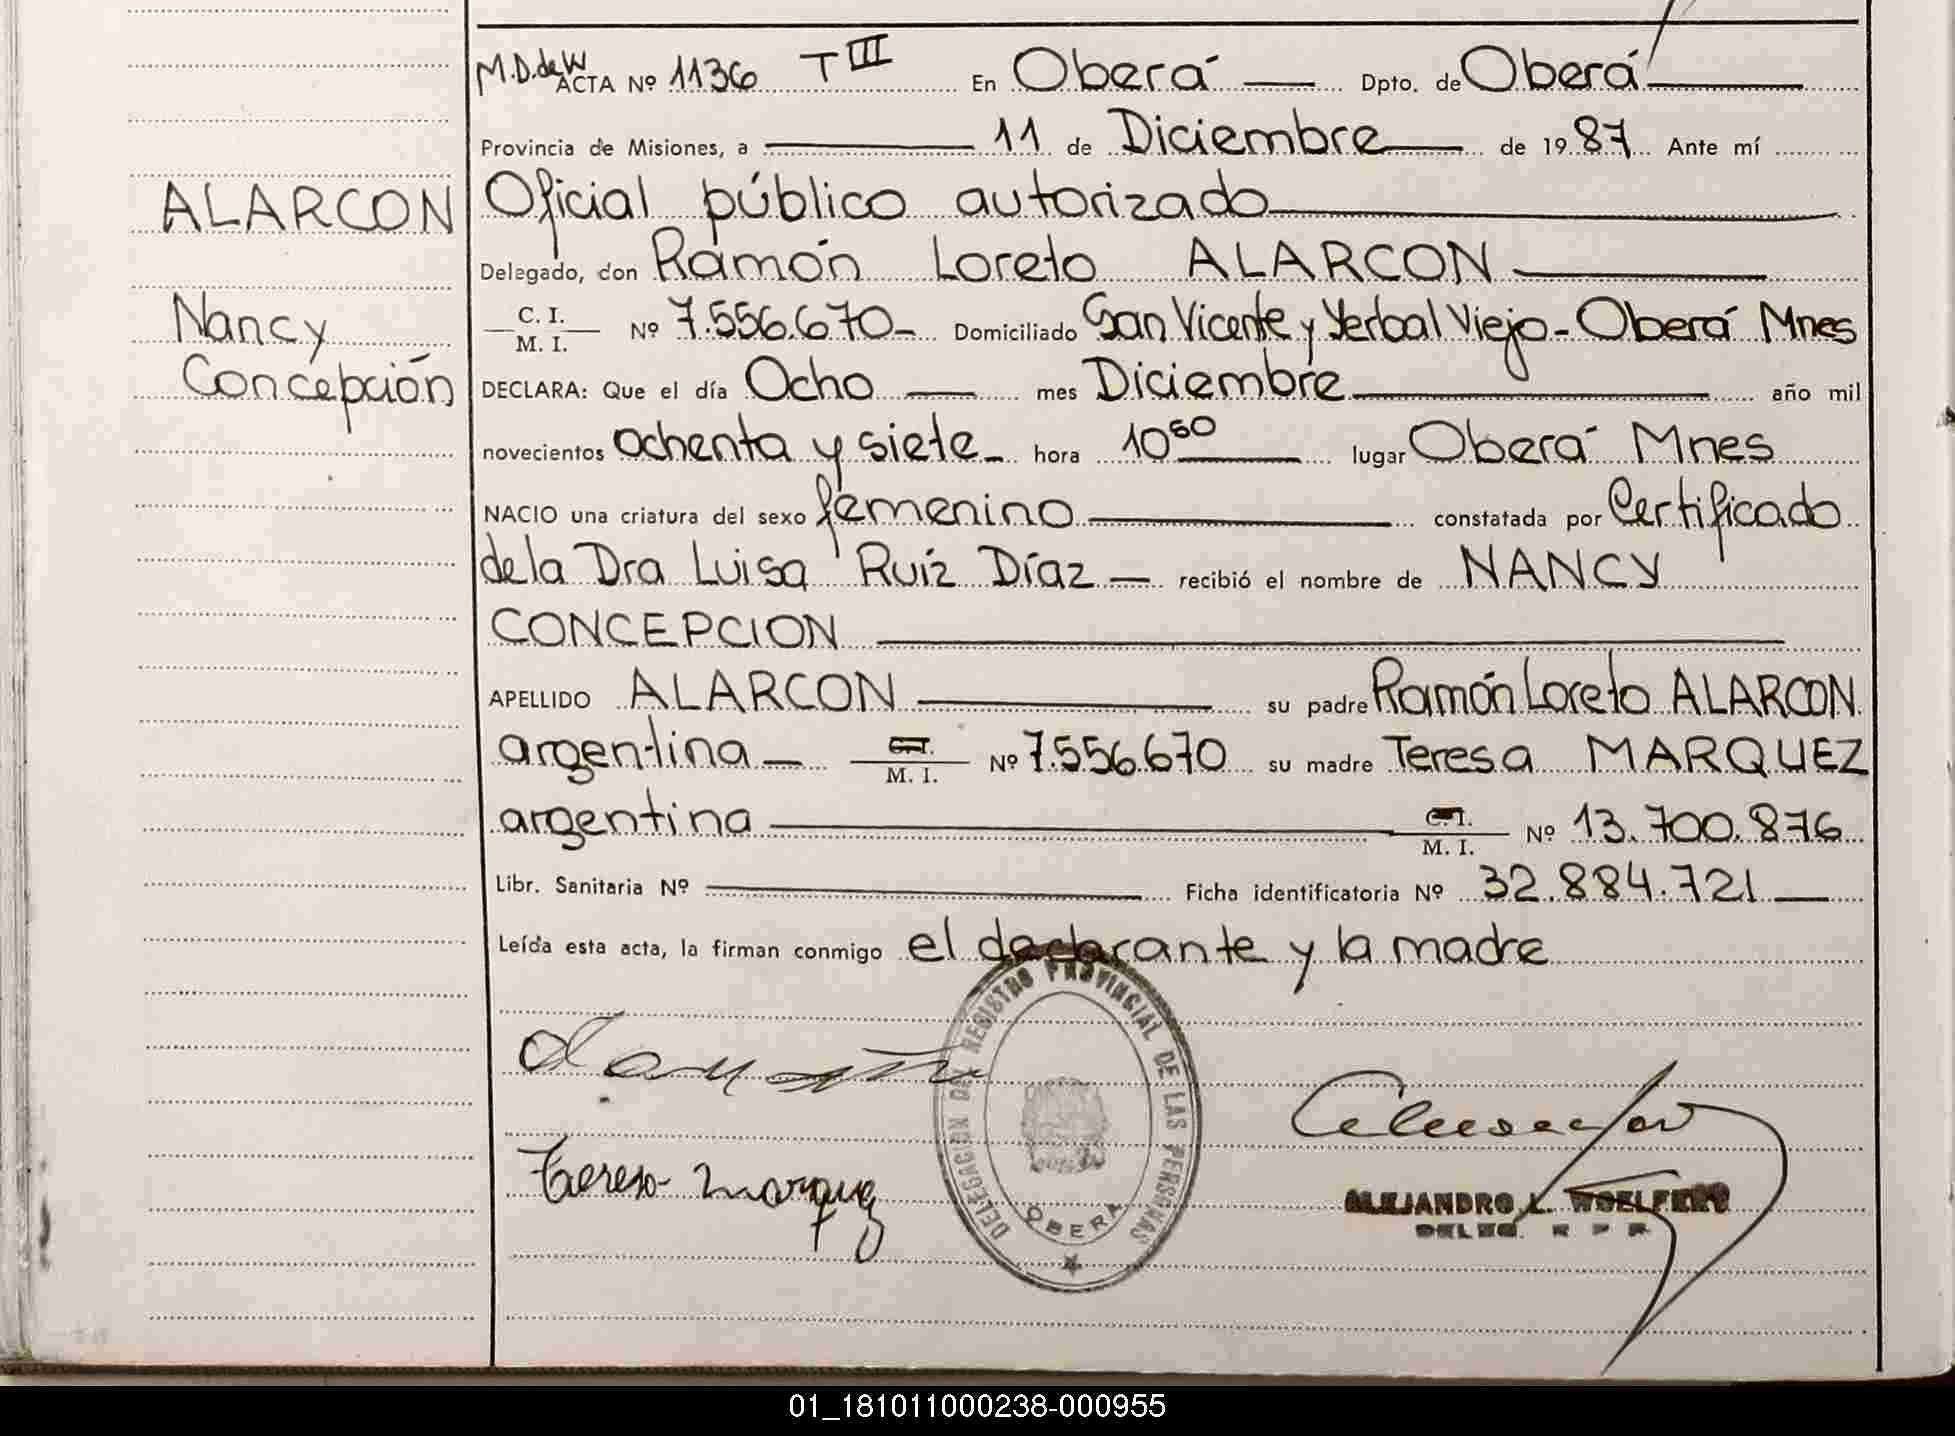 M.D.deW ACTA Nº 1136 T III En Oberá Dpto. de Oberá
Provincia de Misiones, a 11 de Diciembre de 1987 Ante mí
ALARCON
Oficial público autorizado
Delegado, don Ramón Loreto ALARCON
Nancy
C. I.
M. I. Nº 7.556.670- Domiciliado San Vicente y Yerbal Viejo - Oberá Mnes
Concepción
DECLARA: Que el día Ocho mes Diciembre año mil
novecientos ochenta y siete hora 10 50 lugar Oberá Mnes
NACIO una criatura del sexo femenino constatada por Certificado
de la Dra Luisa Ruiz Díaz recibió el nombre de NANCY
CONCEPCION
APELLIDO ALARCON su padre Ramón Loreto ALARCON
argentina C. I. M. I. Nº 7.556.670 su madre Teresa MARQUEZ
argentina C. I. M. I. Nº 13.700.876
Libr. Sanitaria Nº Ficha identificatoria Nº 32.884.721
Leída esta acta, la firman conmigo el declarante y la madre
DELEGACION DEL REGISTRO PROVINCIAL DE LAS PERSONAS
OBERA
Teresa Marquez
ALEJANDRO L.
DELEG. R P P
01_181011000238-000955